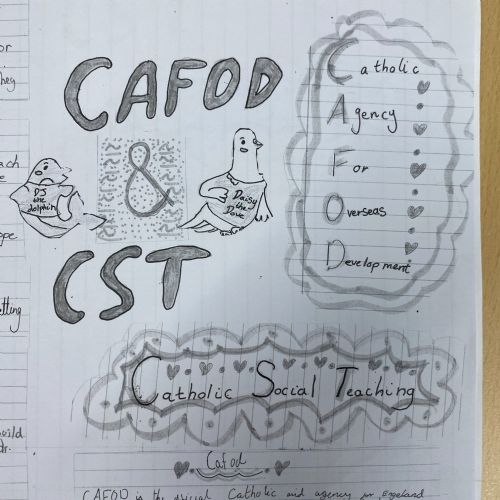 CAFOD
&
CST
DJ the dolphin
Daisy the Dove
Catholic
Agency
For
Overseas
Development
Catholic Social Teaching
Cafod
CAFOD is the official Catholic aid agency for England
or
they
each
ope
etting